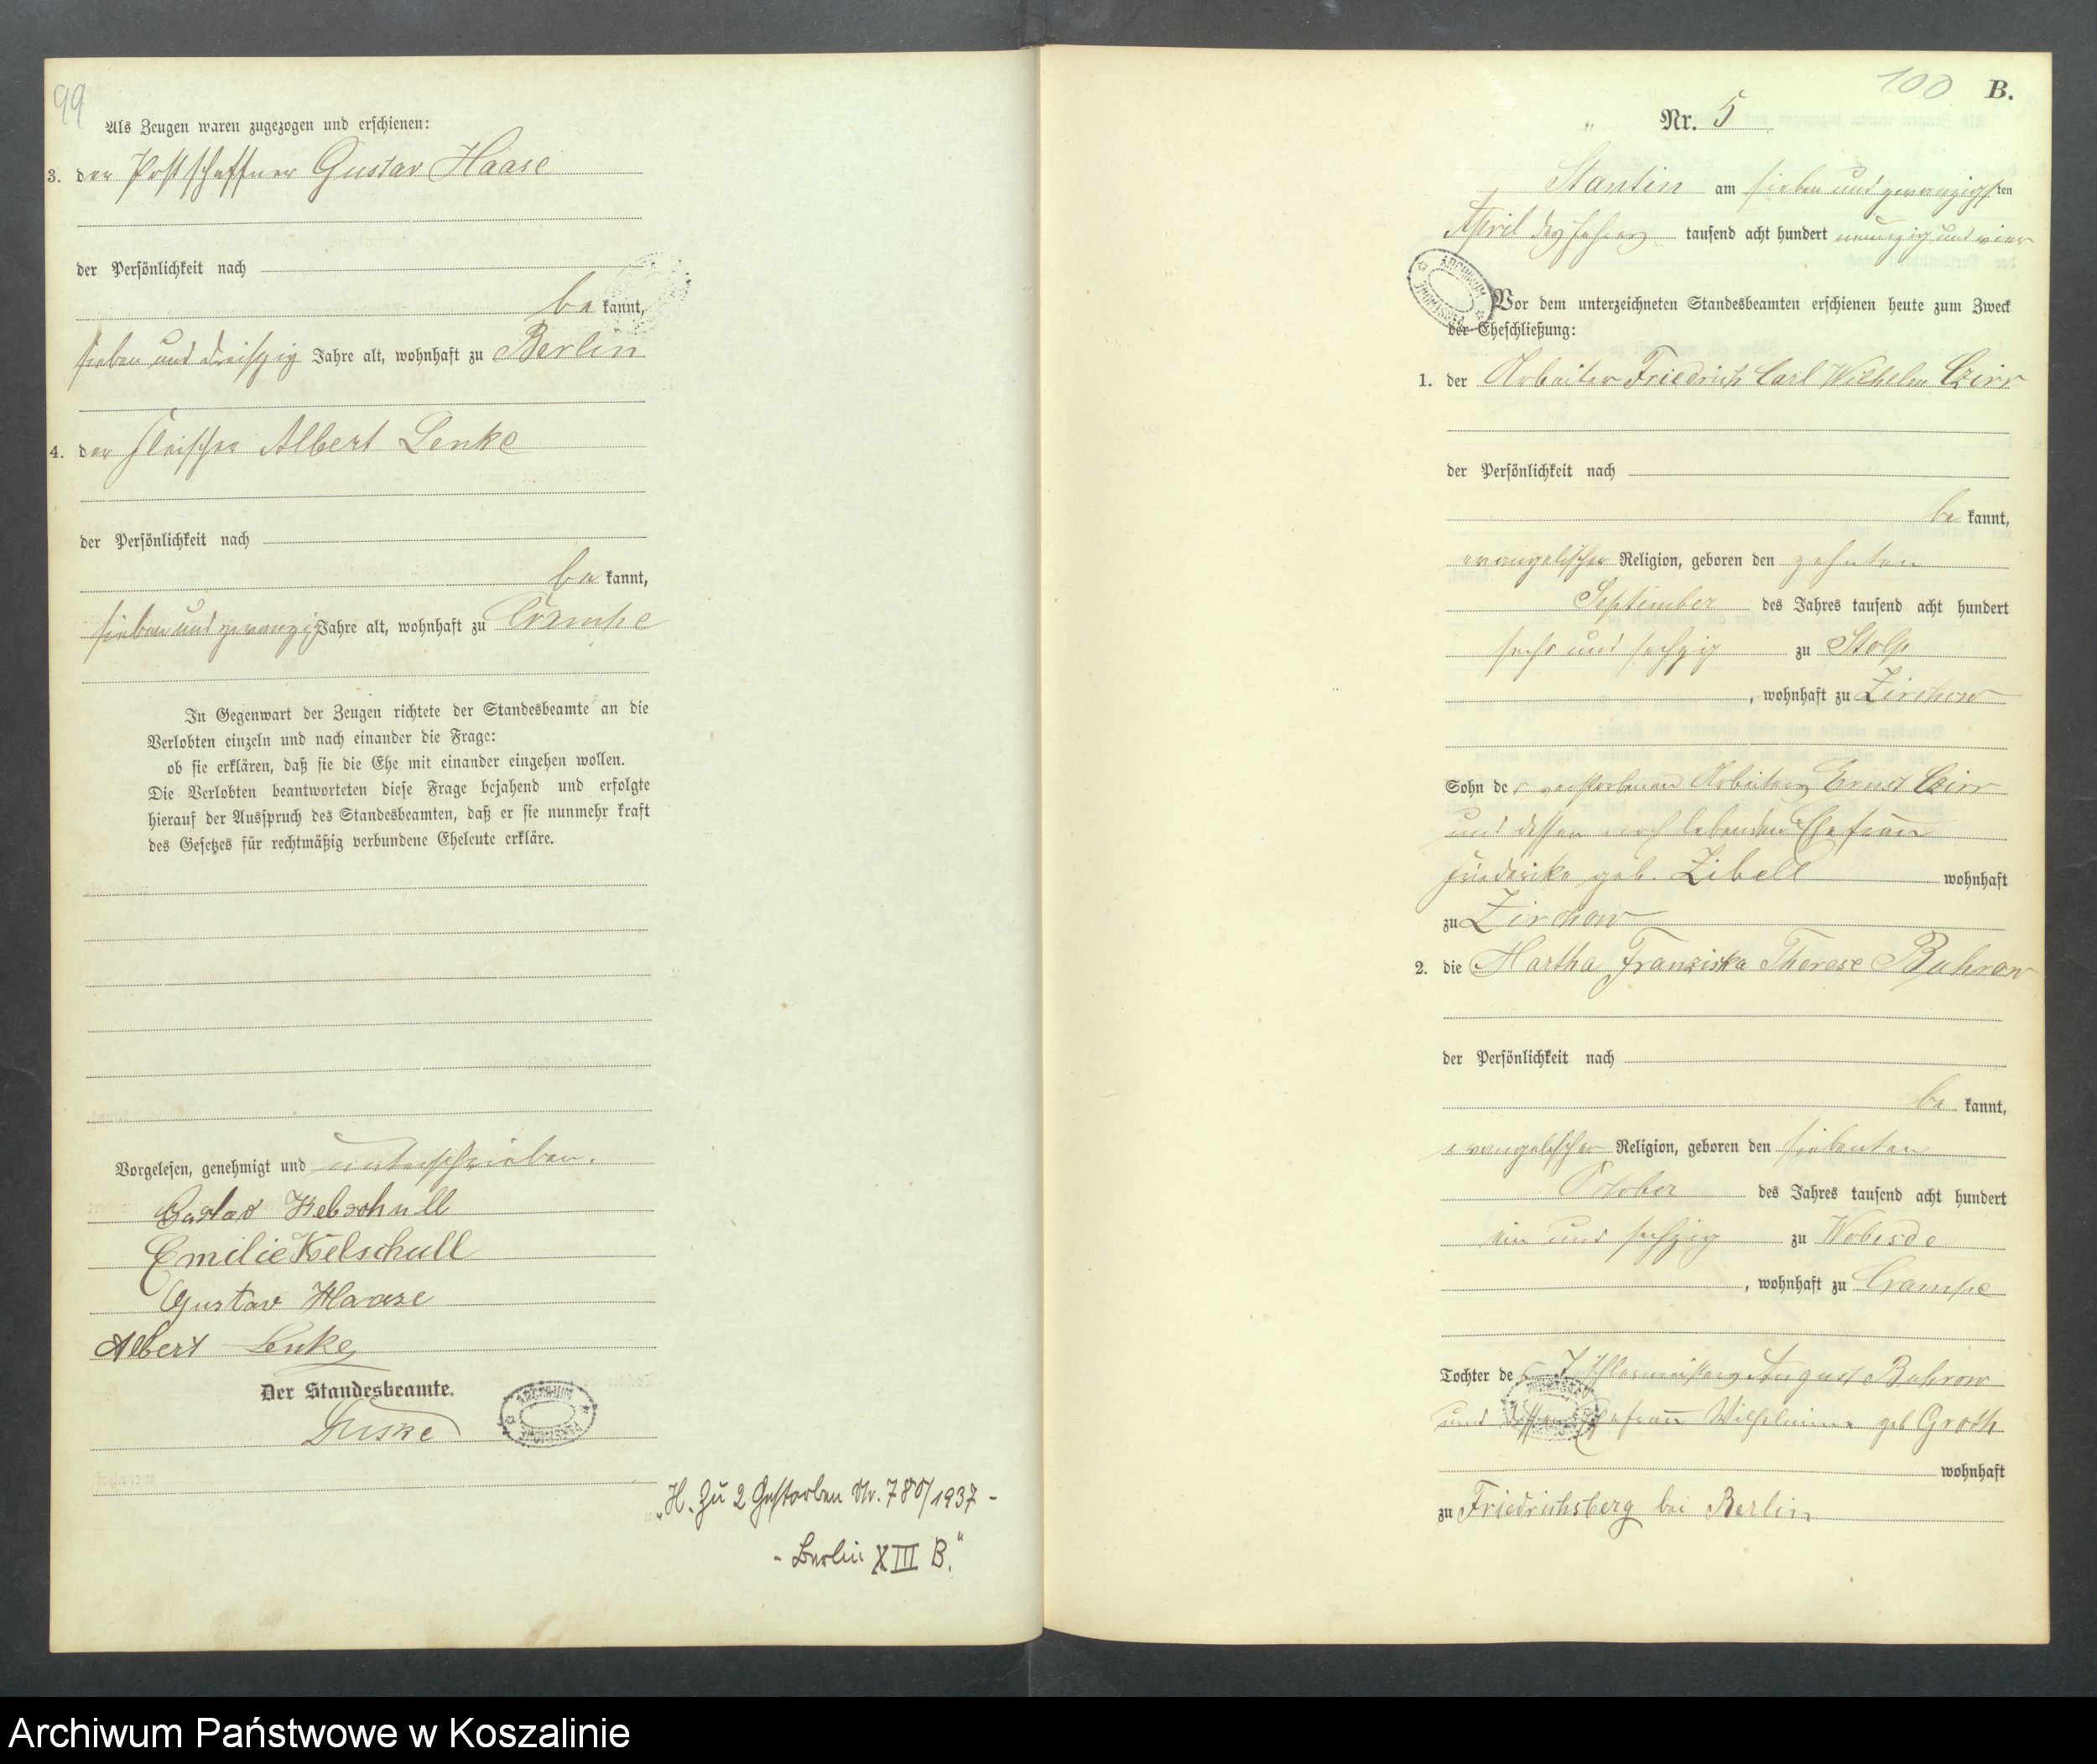 99
Als Zeugen waren zugezogen und erschienen:
3. der Postschaffner Gustav Haase
der Persönlichkeit nach
be kannt,
sieben und dreißzig Jahre alt, wohnhaft zu Berlin
4. der Fleischer Albert Lenke
der Persönlichkeit nach
be kannt,
sieben und zwanzig Jahre alt, wohnhaft zu Crampe
In Gegenwart der Zeugen richtete der Standesbeamte an die
Verlobten einzeln und nach einander die Frage:
ob sie erklären, daß sie die Ehe mit einander eingehen wollen.
Die Verlobten beantworteten diese Frage bejahend und erfolgte
hierauf der Ausspruch des Standesbeamten, daß er sie nunmehr kraft
des Gesetzes für rechtmäßig verbundene Eheleute erkläre.
Vorgelesen, genehmigt und unterschrieben.
Gustav
Emilie
Gustav Haase
Albert Lenke
Der Standesbeamte.
„H. zu 2 Gestorben Nr. 780/1937 -
- Berlin XIII B."
100 B.
Nr. 5
Stantin am sieben und zwanzigsten
April des Jahres tausend acht hundert neunzig und vier
Vor dem unterzeichneten Standesbeamten erschienen heute zum Zweck
der Eheschließung:
1. der Arbeiter Friedrich Carl Wilhelm Czirr
der Persönlichkeit nach
be kannt,
evangelischer Religion, geboren den zehnten
September des Jahres tausend acht hundert
sechs und sechzig zu Stolp
, wohnhaft zu Zirchow
Sohn des verstorbenen Arbeiters Ernst Czirr
und dessen noch lebenden Ehefrau
Friederike geb. Zibell wohnhaft
zu Zirchow
2. die Martha Franziska Therese Buhrow
der Persönlichkeit nach
be kannt,
evangelischer Religion, geboren den siebenten
October des Jahres tausend acht hundert
ein und sechzig zu Wobesde
, wohnhaft zu Crampe
Tochter des Tischlermeisters August Buhrow
und dessen Ehefrau Wilhelmine geb Groth
wohnhaft
zu Friedrichsberg bei Berlin
Archiwum Państwowe w Koszalinie